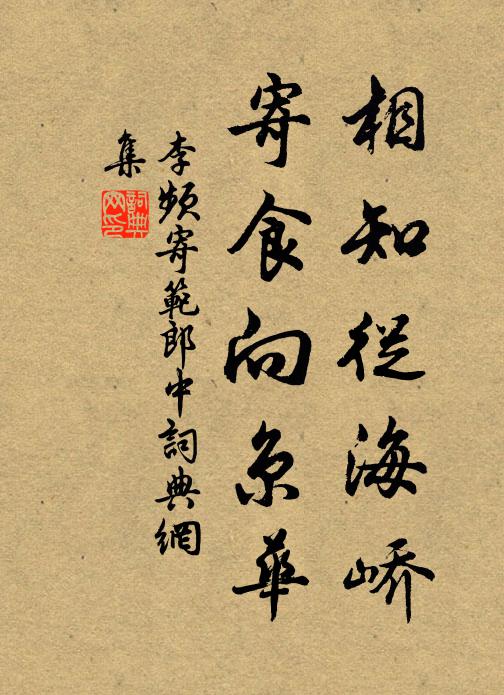 相知從海嶠
寄食向京華
李頻寄範郎中詞典網
集
詞典網印